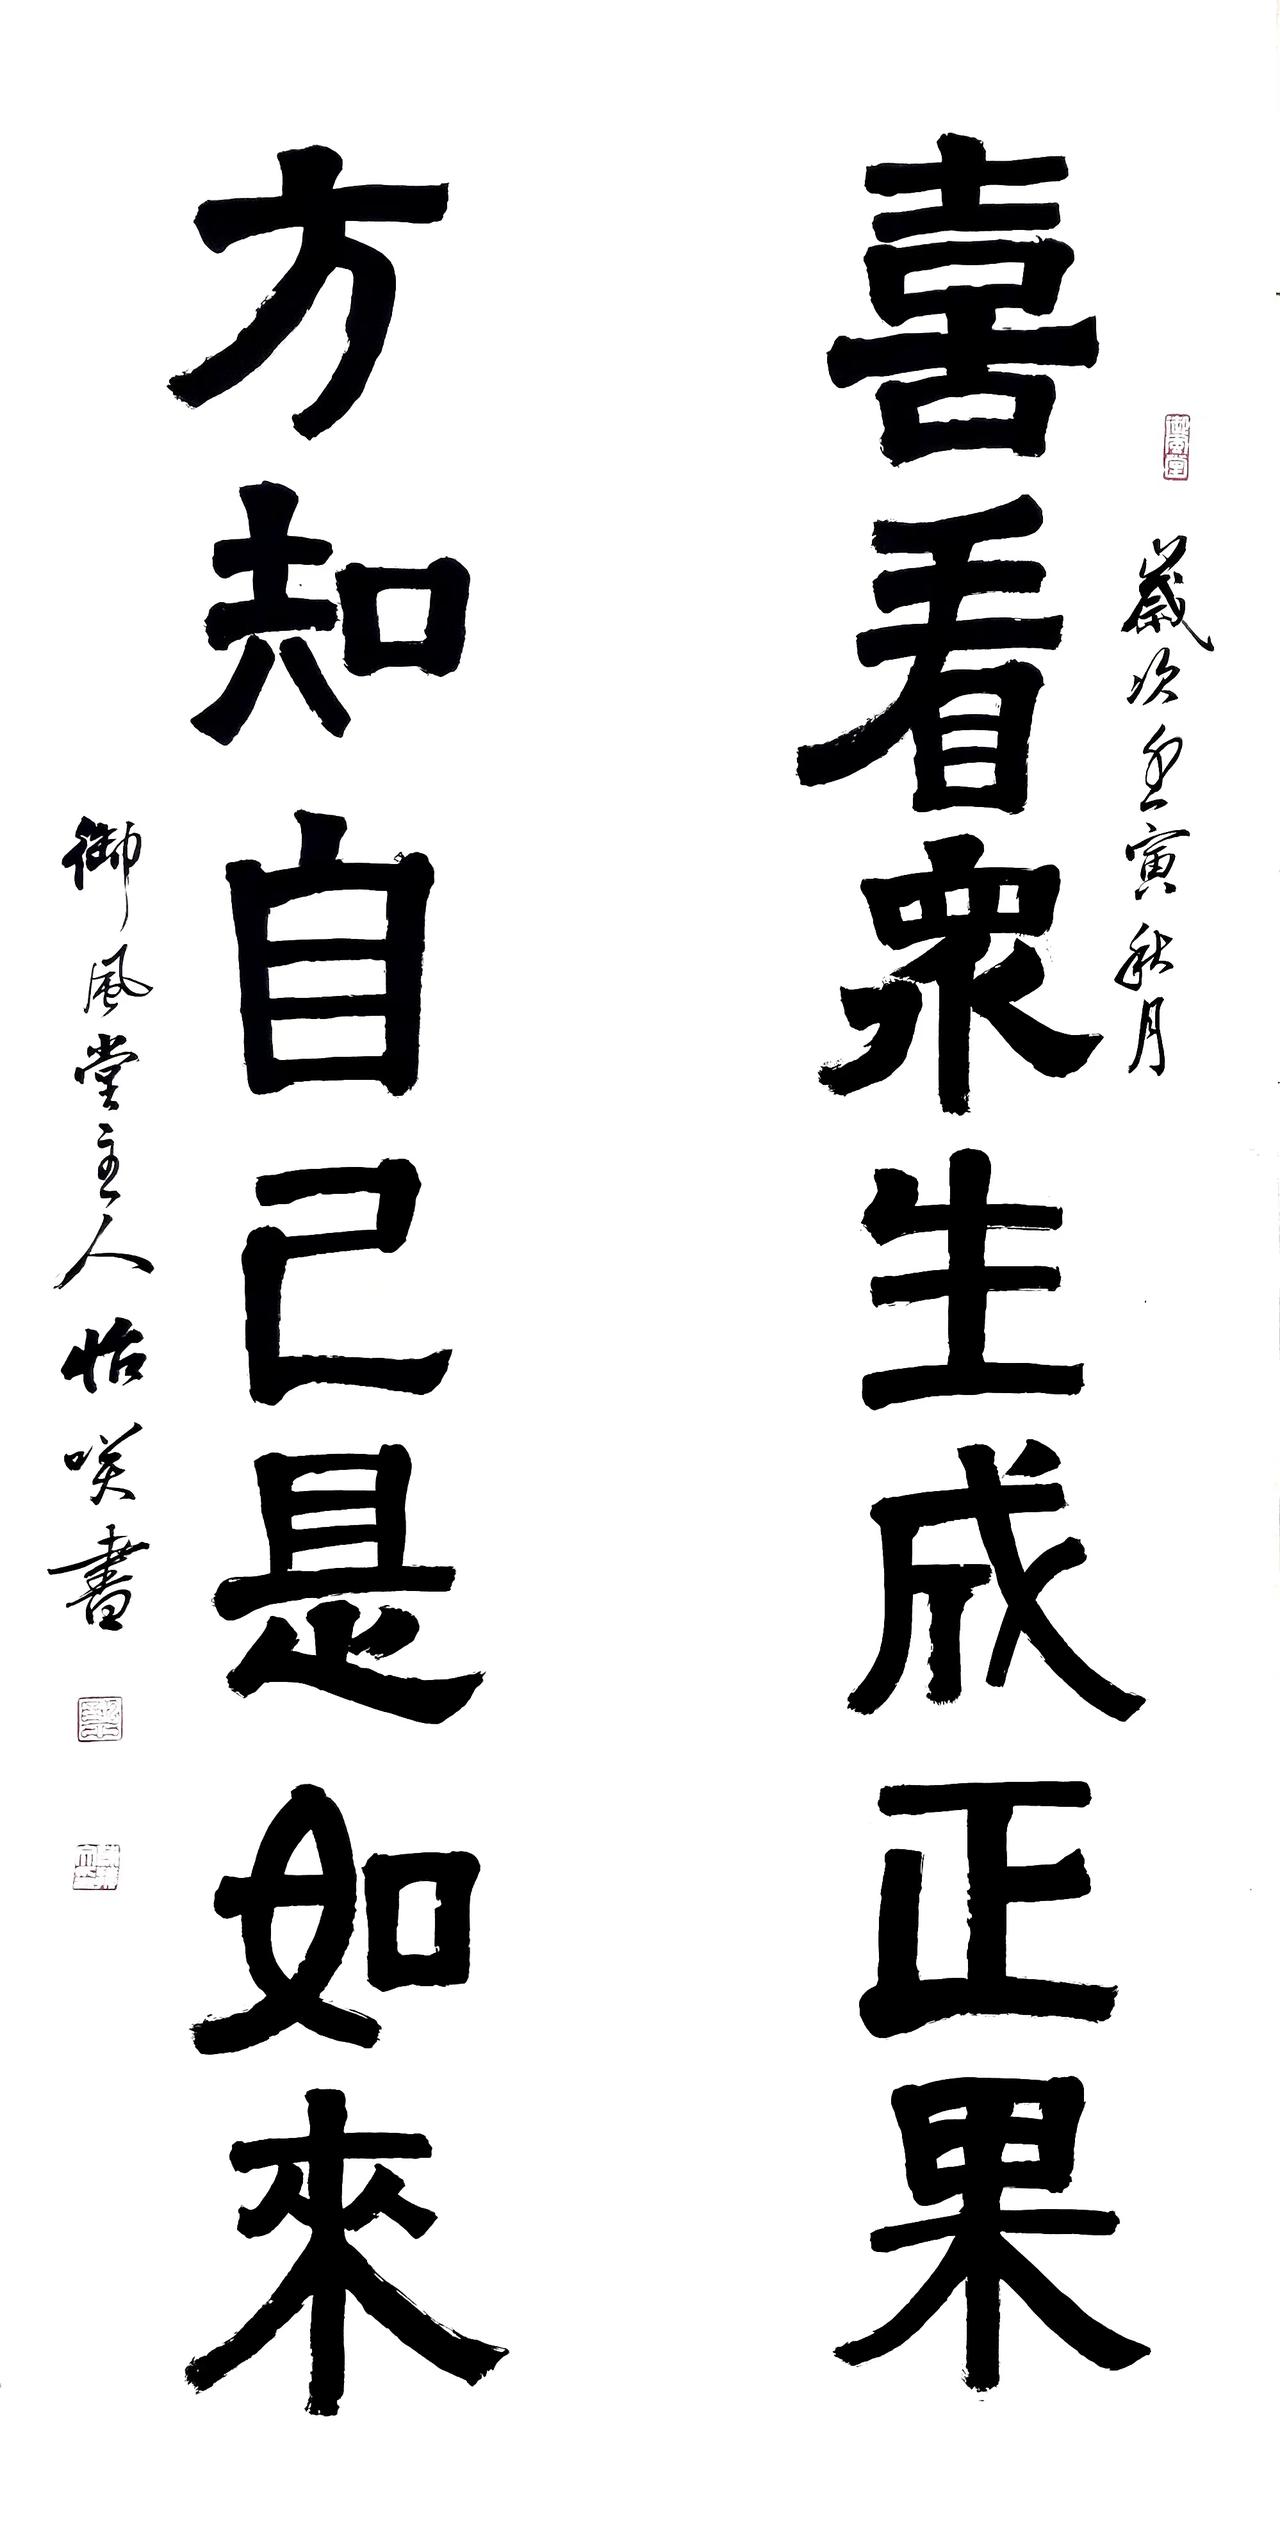 喜看眾生成正果
歲次壬寅秋月
方知自己是如來
御風堂主人怡咲書
御風堂